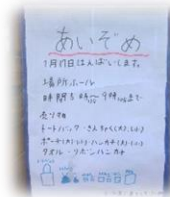 あいぞめ
1月17日はんばいします。
場所ホール
売り物
トートバッグ・きんちゃく(大)(小)
ポーチ(大)(小)・ハンカチ(大)(小)
タオル・リボンハンカチ